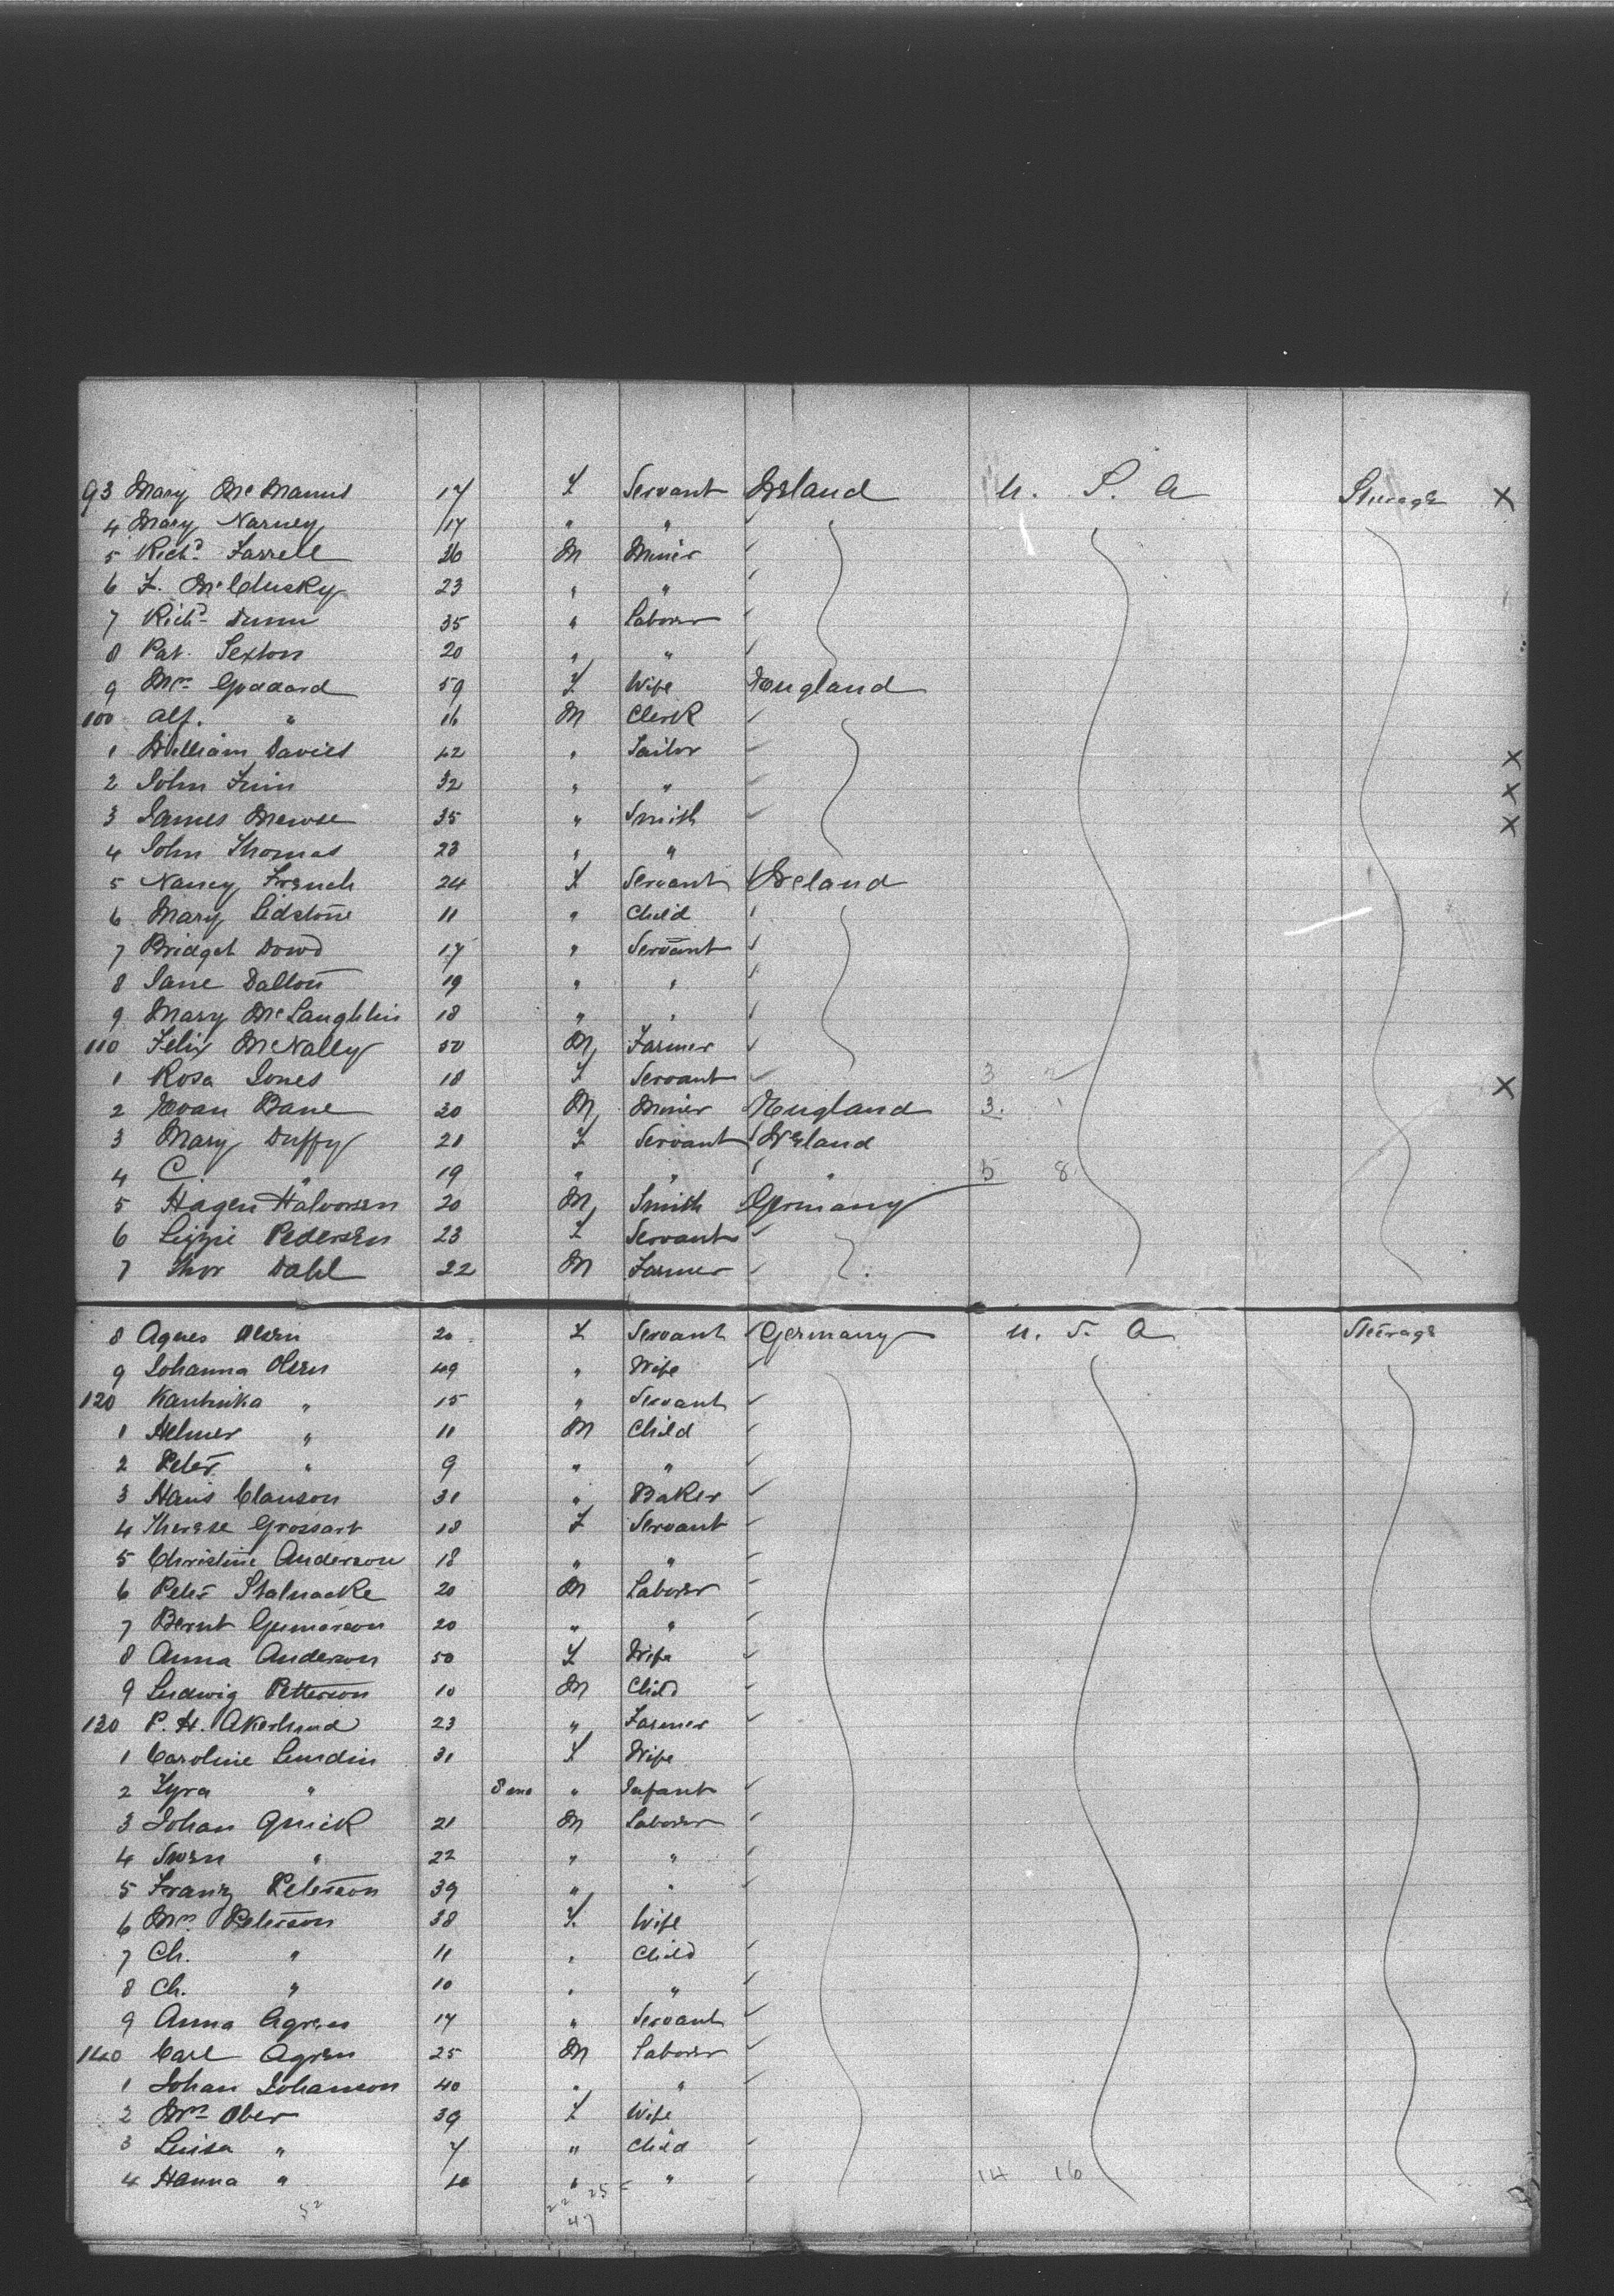 93 Mary McManus 17 F Servant Ireland U. S. A Steerage X
4 Mary Narney 17 " "
5 Richd Farrell 26 M Miner
6 F. McClusky 23 " "
7 Richd Dunn 35 " Laborer
8 Pat. Sexton 20 " "
9 Mrs Goddard 59 F Wife England
100 Alf. " 16 M Clerk
1 William Davies 42 " Tailor X
2 John Finn 32 " " X
3 James 35 " Smith X
4 John Thomas 23 " "
5 Nancy French 24 F Servant Ireland
6 Mary Lidstone 11 " Child
7 Bridget Dowd 17 " Servant
8 Jane Dalton 19 " "
9 Mary McLaughlin 18 " "
110 Felix McNally 50 M Farmer
1 Rosa Jones 18 F Servant 3 2 X
2 Evan Bane 30 M Miner England 3. 1
3 Mary Duffy 21 F Servant Ireland
4 C. " 19 " " " 5 8
5 Hagen Halvorsen 20 M Smith Germany
6 Lizzie Pedersen 23 F Servant
7 Thor Dahl 22 M Farmer
8 Agnes Olsen 20 F Servant Germany U. S. A Steerage
9 Johanna Olsen 49 " Wife
120 " 15 " Servant
1 Helmer " 11 M Child
2 Peter " 9 " "
3 Hans Clauson 31 " Baker
4 Therese Grossart 18 F Servant
5 Christine Anderson 18 " "
6 Peter Stalnacke 20 M Laborer
7 Bernt Gunnarson 20 " "
8 Anna Anderson 50 F Wife
9 Ludwig Petterson 10 M Child
130 P. H. Akerlund 23 " Farmer
1 Caroline Lundin 31 F Wife
2 Zyra " 8 mo " Infant
3 Johan Quick 21 M Laborer
4 Swen " 22 " "
5 Franz Peterson 39 " "
6 Mrs Peterson 38 F Wife
7 Ch. " 11 " Child
8 Ch. " 10 " "
9 Anna Agren 17 " Servant
140 Carl Agren 25 M Laborer
1 Johan Johanson 40 " "
2 Mrs Ober 39 F Wife
3 Luisa " 7 " Child
4 Hanna " " " 14 16
52 22 25
47